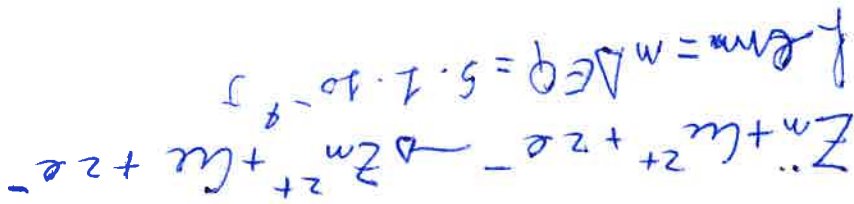 Zn + Cu²⁺ + 2e⁻ → Zn²⁺ + Cu + 2e⁻
fem = nΔEQ = 5·1·10⁻⁹ J